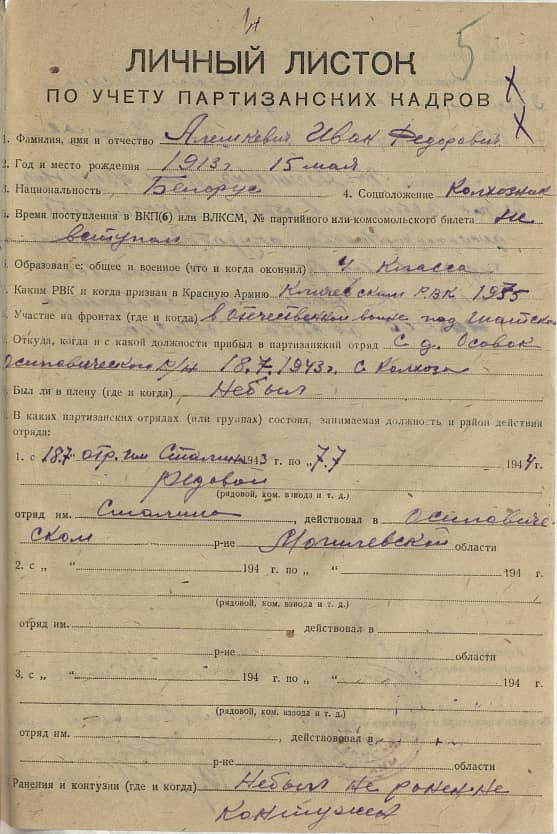 4
5
ЛИЧНЫЙ ЛИСТОК
ПО УЧЕТУ ПАРТИЗАНСКИХ КАДРОВ X
X
1. Фамилия, имя и отчество Алешкевич Иван Федорович
2. Год и место рождения 1913 г 15 мая
3. Национальность Белорус 4. Соцположение Колхозник
5. Время поступления в ВКП(б) или ВЛКСМ, № партийного или комсомольского билета не
вступал
6. Образование; общее и военное (что и когда окончил) 4 класса
7. Каким РВК и когда призван в Красную Армию Кличевским РВК 1935
8. Участие на фронтах (где и когда) в отечественной войне под
9. Откуда, когда и с какой должности прибыл в партизанкий отряд С д. Осовок
Осиповическом р/н 18.7.1943 г. с Колхоза
Был ли в плену (где и когда) Небыл
В каких партизанских отрядах (или группах) состоял, занимаемая должность и район действия
отряда:
1. с „18.7 отр. им Сталина 1943 г. по „7.7 1944 г.
редовой
(рядовой, ком. взвода и т. д.)
отряд им. Сталина, действовал в Осиповиче-
ском р-не Могилевской области
2. с „ “ 194 г. по „ “ 194 г.
(рядовой, ком. взвода и т. д.)
отряд им. , действовал в
р-не области
3. с „ “ 194 г. по „ “ 194 г.
(рядовой, ком. взвода и т. д.)
отряд им. , действовал в
р-не области
Ранения и контузии (где и когда) Небыл не ранен не
контужен